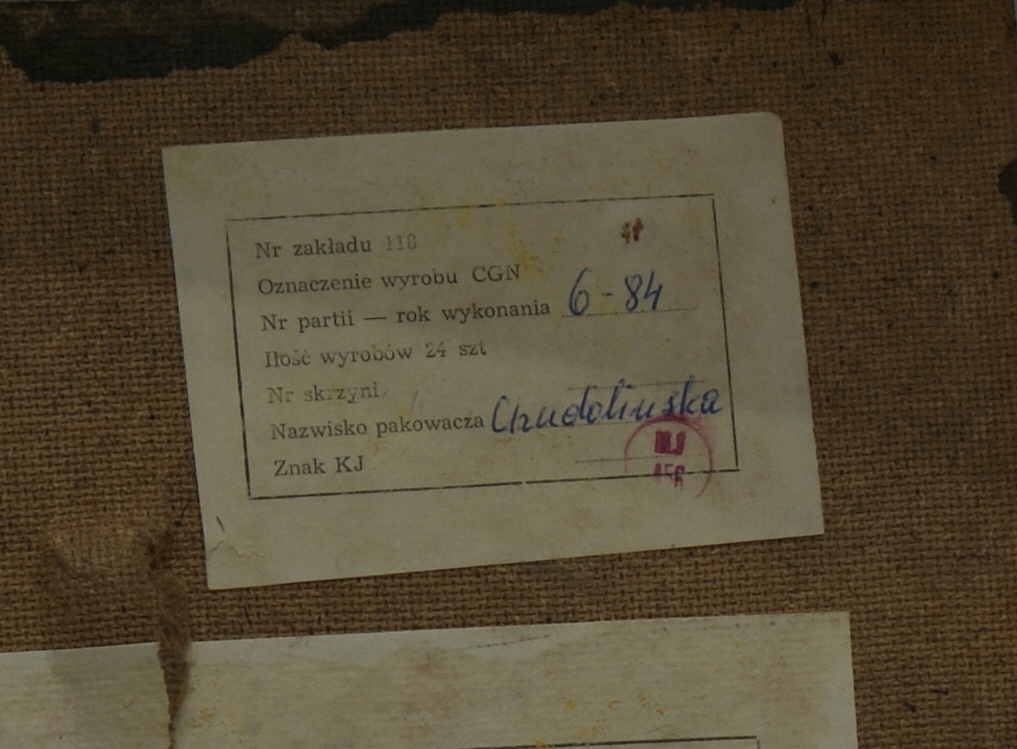 Nr zakładu 118
Oznaczenie wyrobu CGN
Nr partii — rok wykonania 6-84
Ilość wyrobów 24 szt
Nr skrzyni
Nazwisko pakowacza Chudolinska
Znak KJ